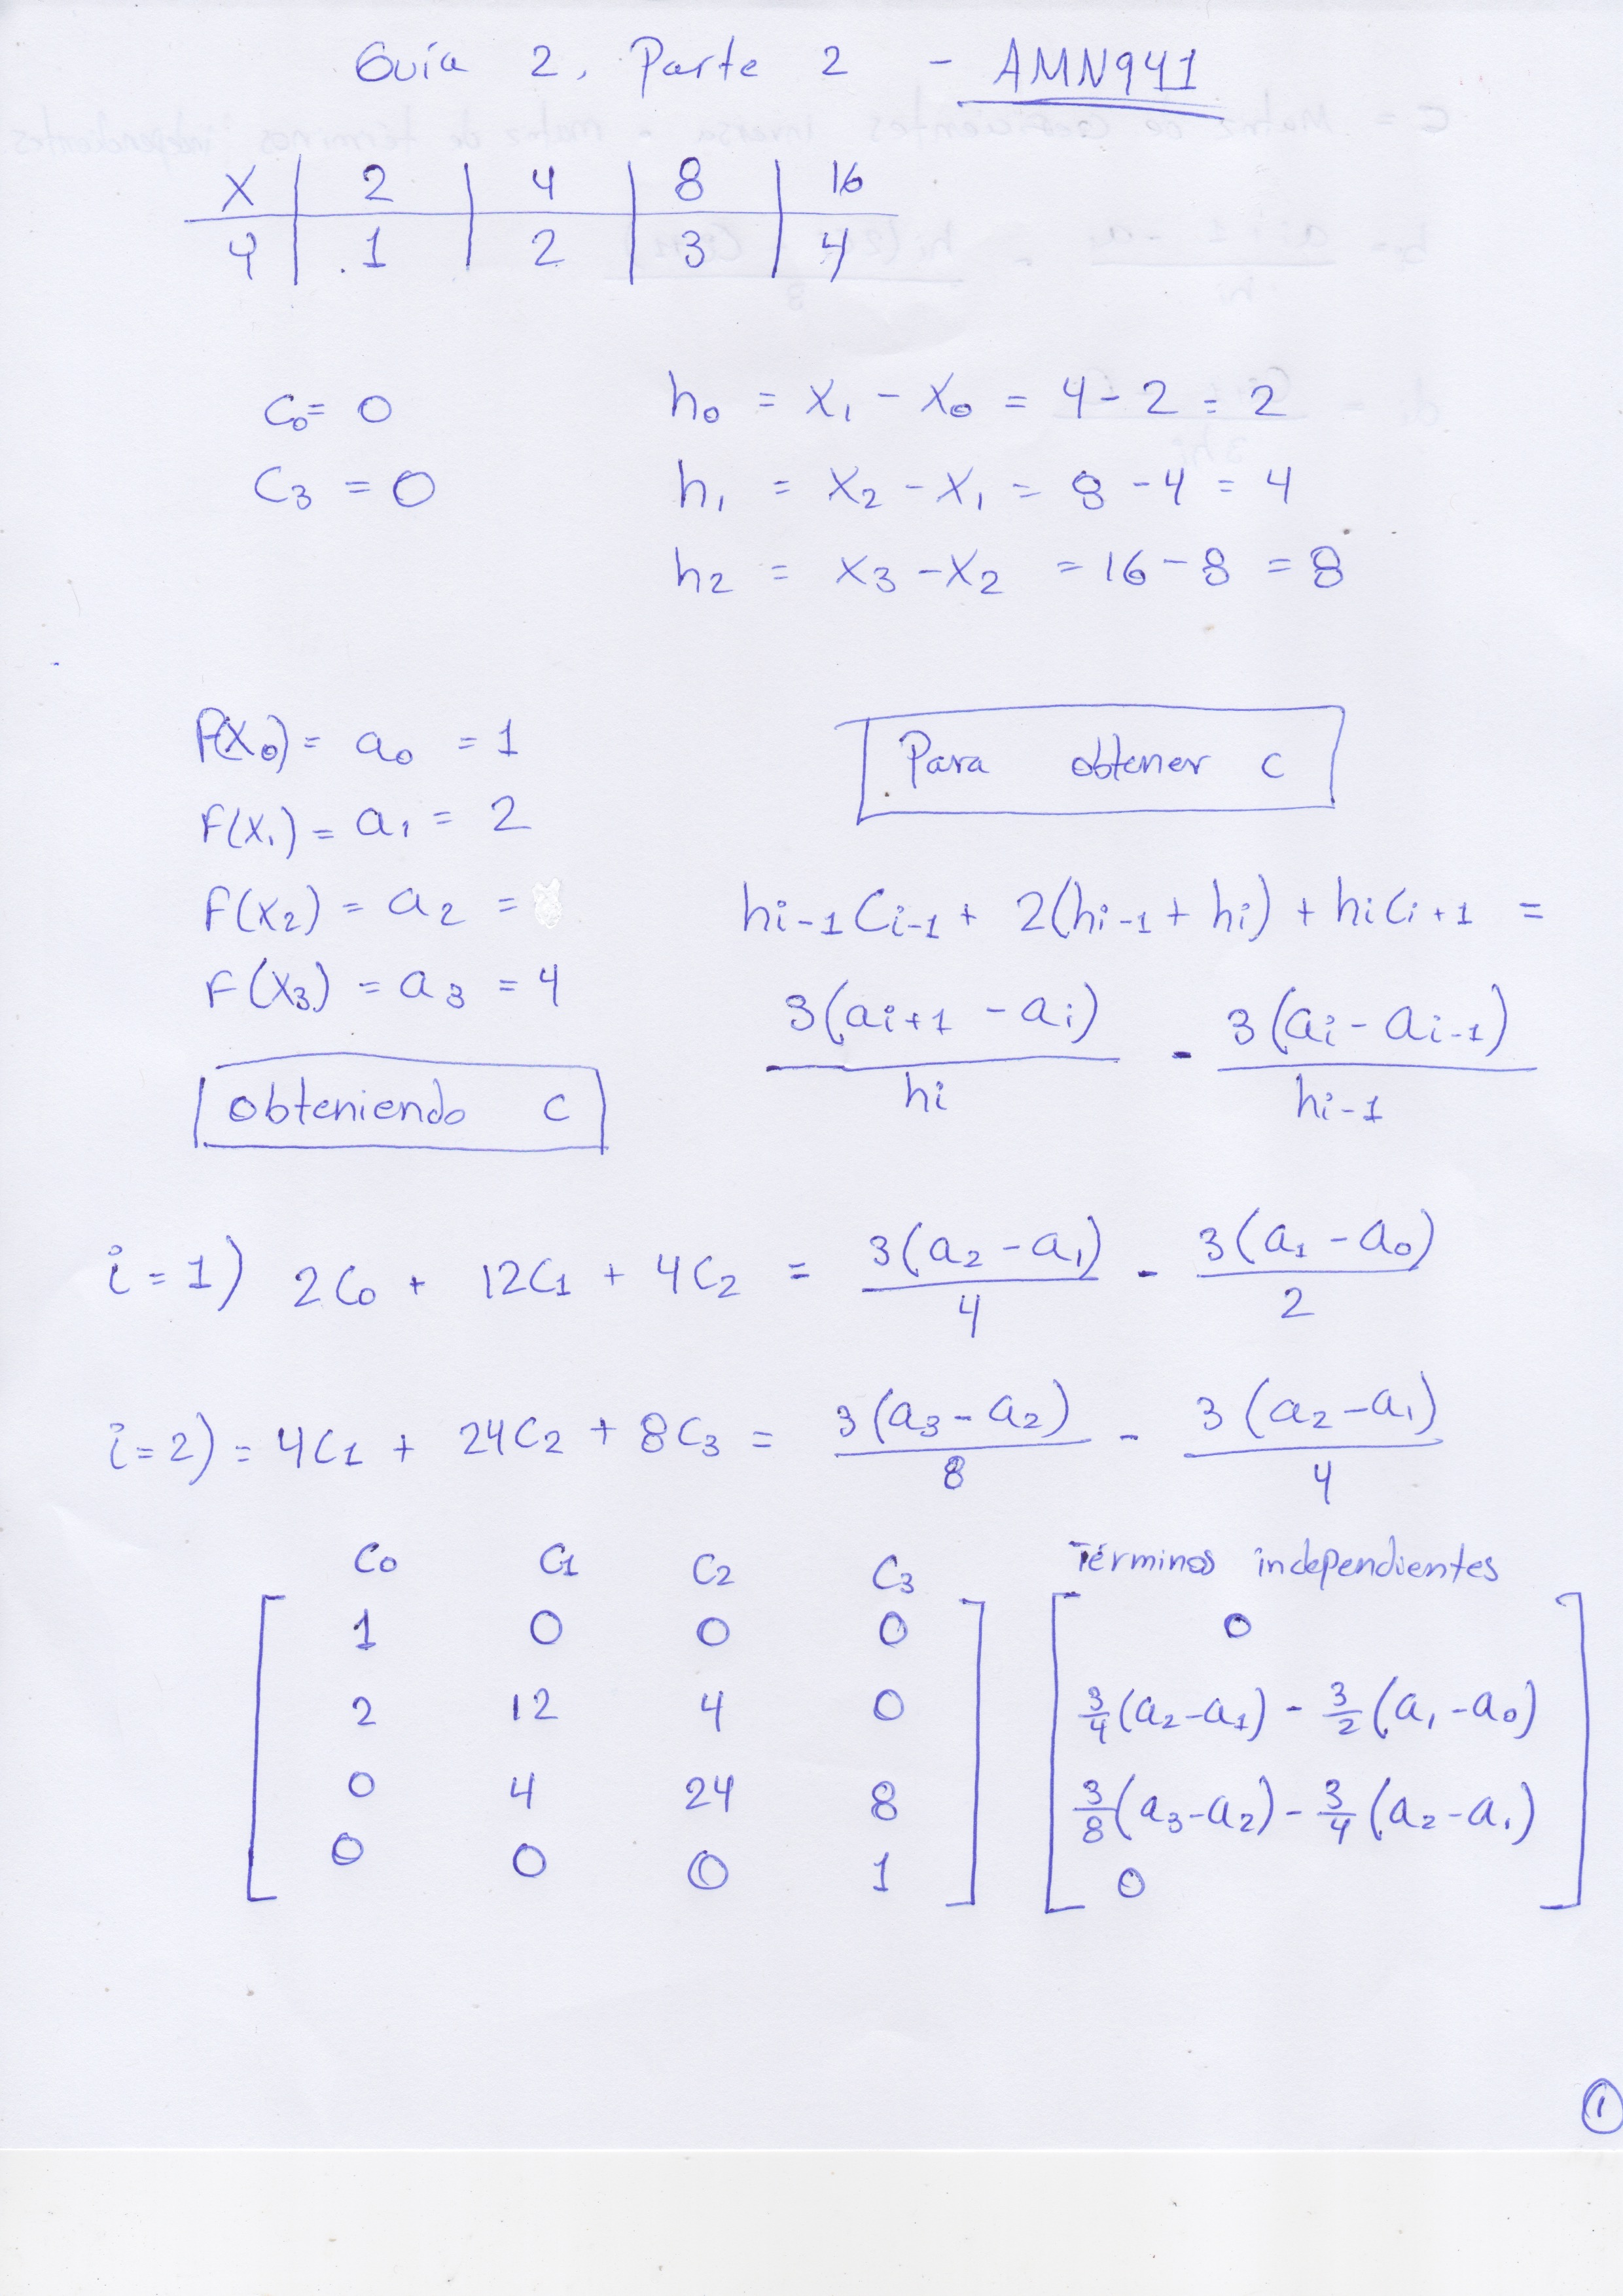 Guía 2, Parte 2 - AMN941
X | 2 | 4 | 8 | 16
Y | 1 | 2 | 3 | 4
C₀ = 0
C₃ = 0
h₀ = X₁ - X₀ = 4 - 2 = 2
h₁ = X₂ - X₁ = 8 - 4 = 4
h₂ = X₃ - X₂ = 16 - 8 = 8
F(X₀) = a₀ = 1
F(X₁) = a₁ = 2
F(X₂) = a₂ =
F(X₃) = a₃ = 4
obteniendo C
Para obtener C
hi-1 Ci-1 + 2(hi-1 + hi) + hi Ci+1 =
3(ai+1 - ai) / hi - 3(ai - ai-1) / hi-1
i = 1) 2C₀ + 12C₁ + 4C₂ = 3(a₂ - a₁) / 4 - 3(a₁ - a₀) / 2
i = 2) = 4C₁ + 24C₂ + 8C₃ = 3(a₃ - a₂) / 8 - 3(a₂ - a₁) / 4
C₀ C₁ C₂ C₃
1 0 0 0
2 12 4 0
0 4 24 8
0 0 0 1
Términos independientes
0
3/4 (a₂ - a₁) - 3/2 (a₁ - a₀)
3/8 (a₃ - a₂) - 3/4 (a₂ - a₁)
0
1